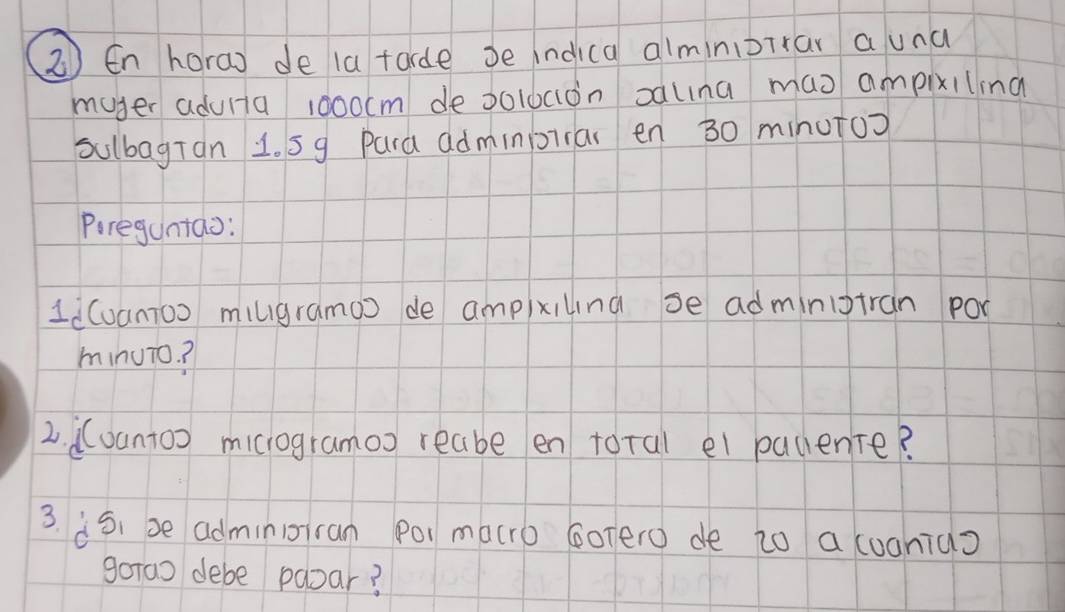 2) En horas de la tarde se indica alministrar a una
muger adulta 1000cm de solución salina mas ampixilina
sulbagtan 1.5g para administrar en 30 minutos
Poreguntas:
1¿Cuantos miligramos de ampixilina se administran por
minuto.?
2.¿Cuantos microgramos reabe en total el paciente?
3.¿Si se administran por macro Gotero de 20 a cuantas
gotas debe pasar?